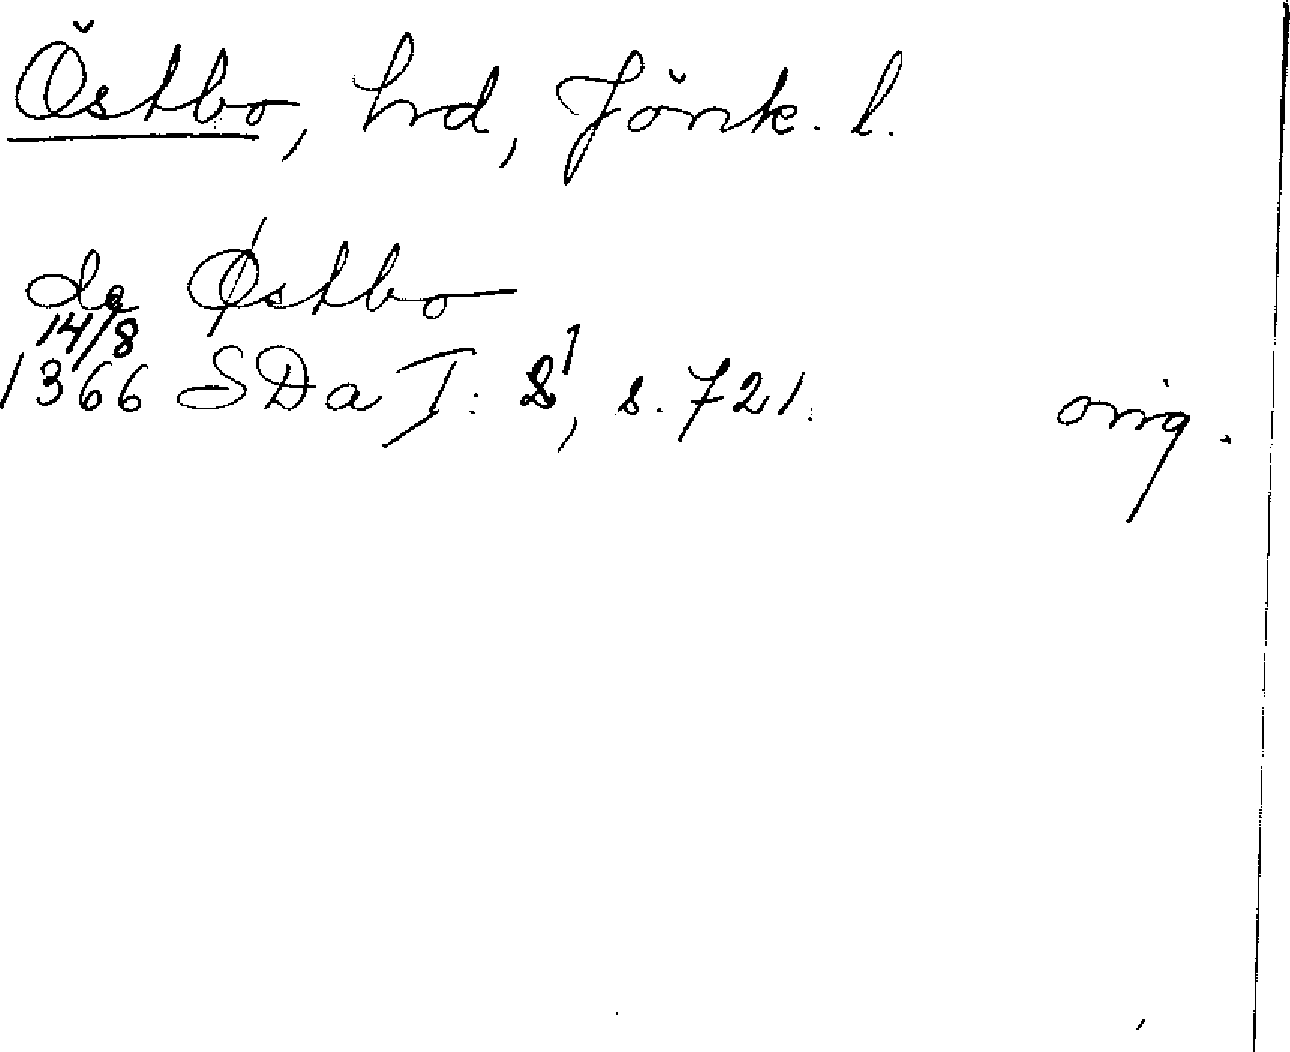 Östbo, hrd, Jönk. l.
de Østbo
14/8
1366 SDa I: 8¹, s. 721. orig.